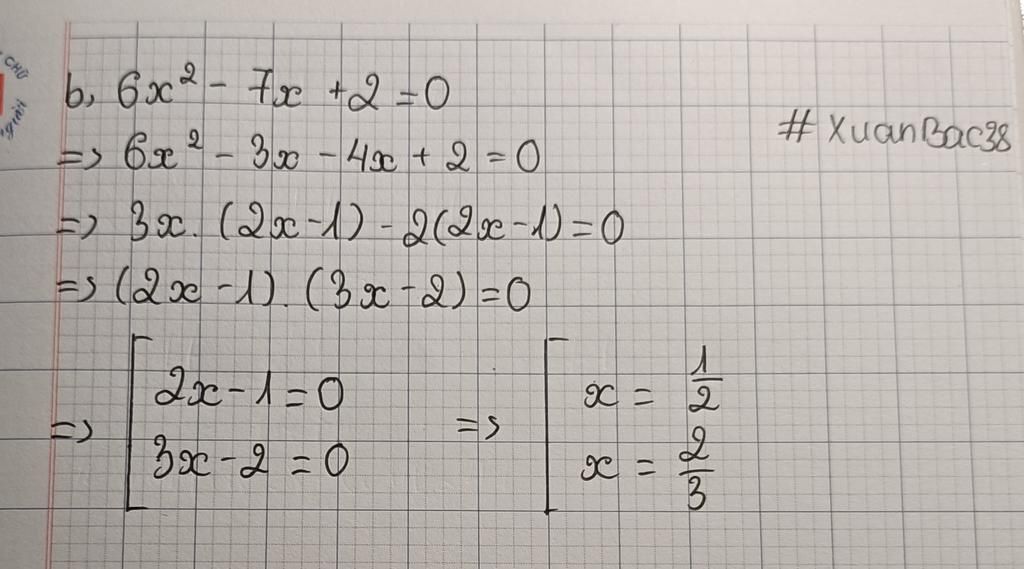 CHỮ
b, 6x² - 7x + 2 = 0
# XuanBac38
=> 6x² - 3x - 4x + 2 = 0
=> 3x. (2x-1) - 2(2x-1) = 0
=> (2x-1). (3x-2) = 0
=> [ 2x-1 = 0 => [ x = 1/2
3x-2 = 0 x = 2/3